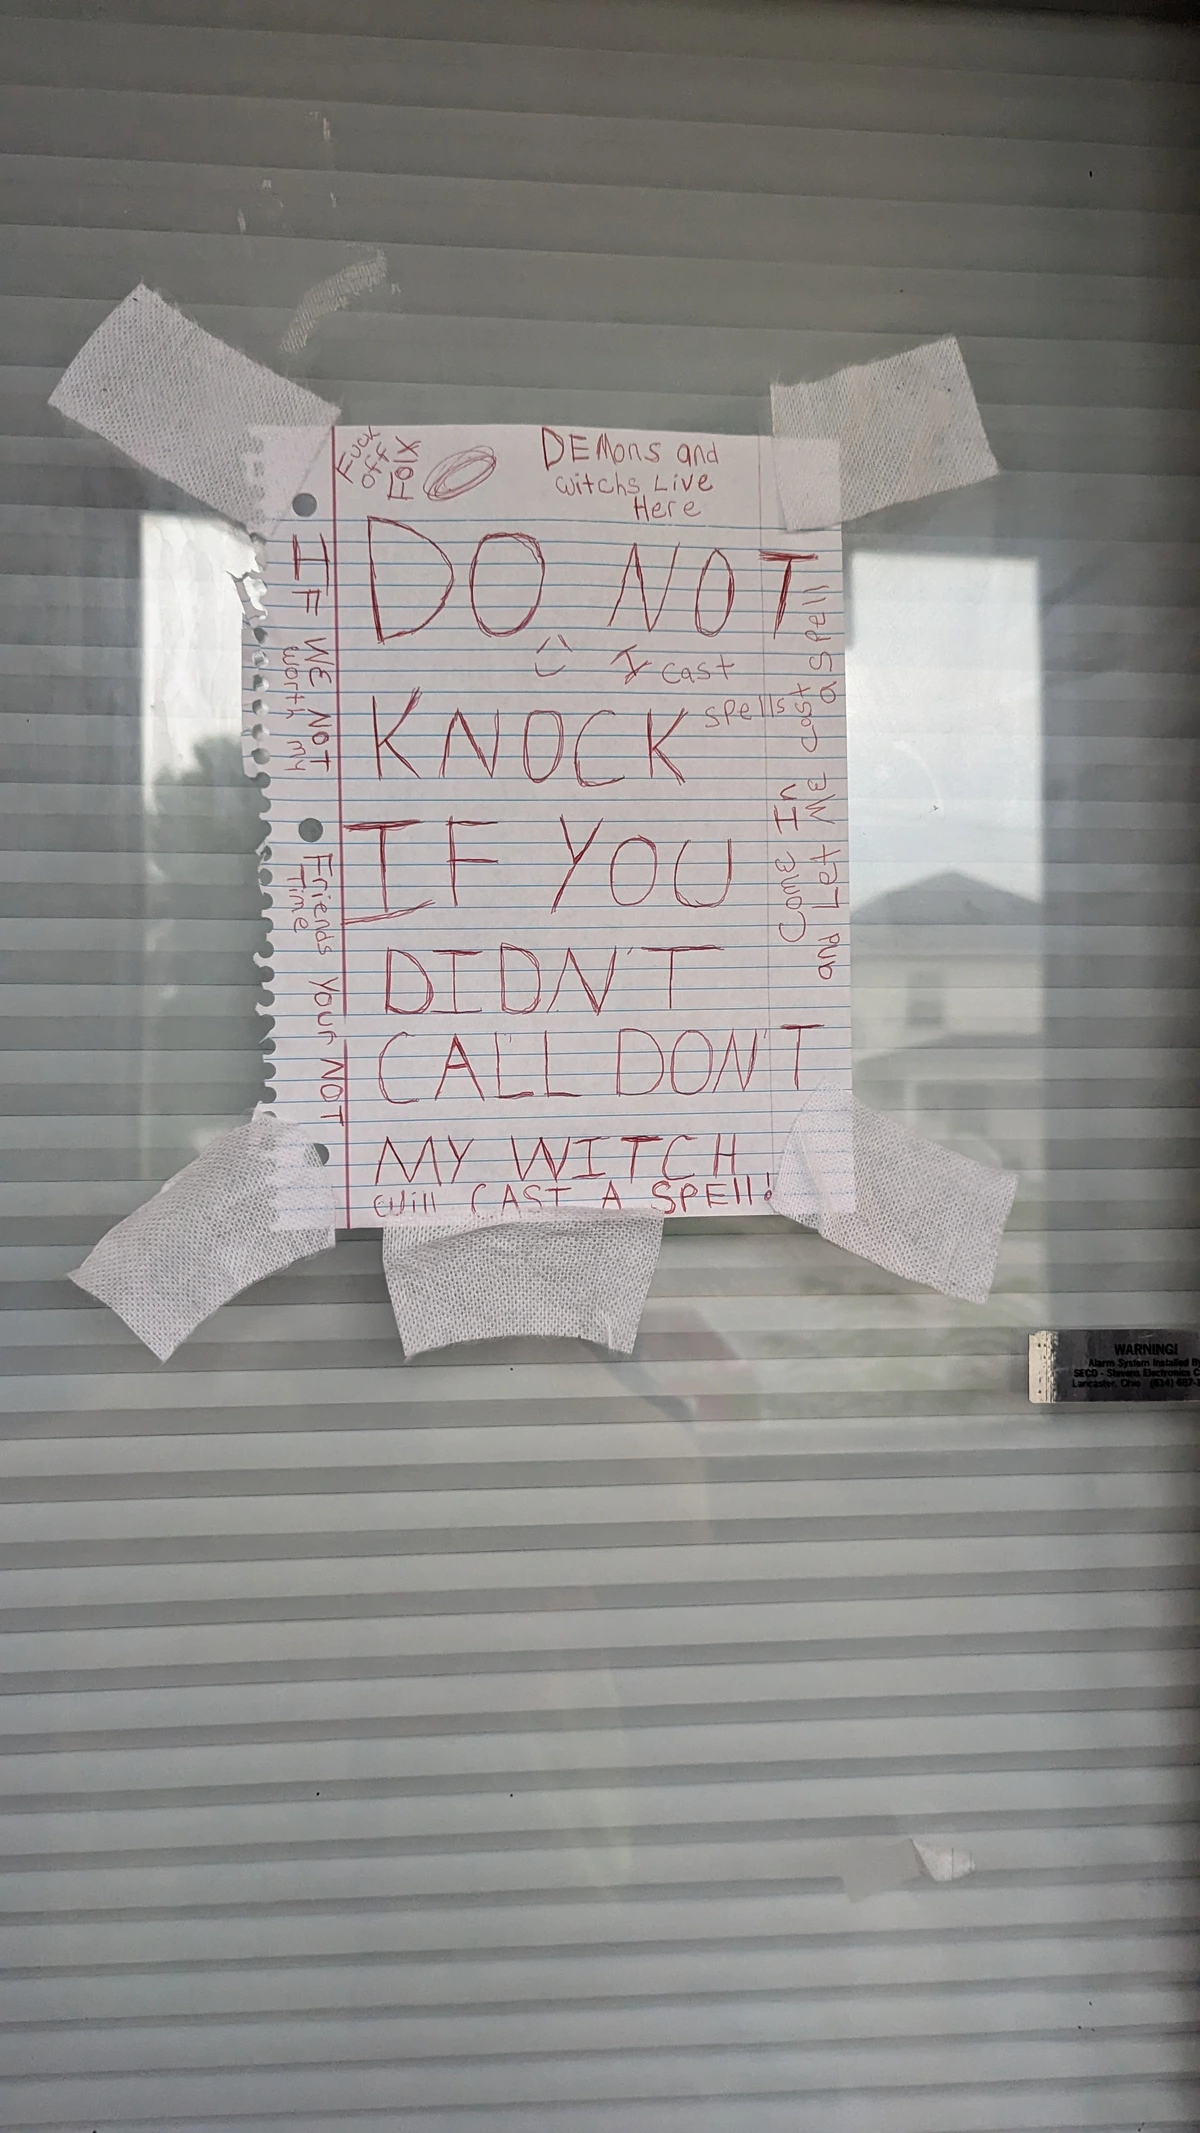 Fuck
off
Folx
DEMons and
witchs Live
Here
DO NOT
I cast
spells
KNOCK
IF YOU
DIDN'T
CALL DON'T
MY WITCH
Will CAST A SPEll!
IF WE NOT Friends Your NOT
worth my Time
Come In
and Let ME cast
a spell
WARNING!
Alarm System Installed By
SECO - Stevens Electronics C
Lancaster, Ohio (614)